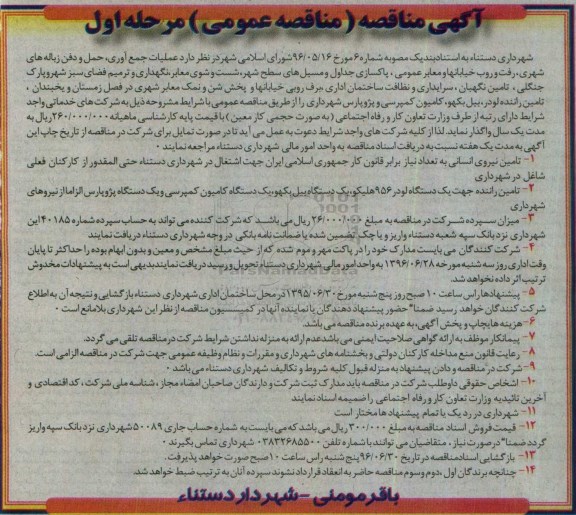 آگهی مناقصه ( مناقصه عمومی ) مرحله اول
شهرداری دستناء به استناد بند یک مصوبه شماره ۶ مورخ ۹۶/۰۵/۱۶ شورای اسلامی شهر در نظر دارد عملیات جمع آوری، حمل و دفن زباله های
شهری، رفت و روب خیابانها و معابر عمومی ، پاکسازی جداول و مسیل های سطح شهر، شست و شوی معابر، نگهداری و ترمیم فضای سبز شهر و پارک
جنگلی ، تامین نگهبان ، سرایداری و نظافت ساختمان اداری ،برف روبی خیابانها و پخش شن و نمک معابر شهری در فصل زمستان و یخبندان ،
تامین راننده لودر، بیل بکهو، کامیون کمپرسی و پژو پارس شهرداری را از طریق مناقصه عمومی با شرایط مشروحه ذیل به شرکت های خدماتی واجد
شرایط دارای رتبه از طرف وزارت تعاون کار و رفاه اجتماعی (به صورت حجمی کار معین ) با قیمت پایه کارشناسی ماهیانه ۲۶۰/۰۰۰/۰۰۰ ریال به
مدت یک سال واگذار نماید. لذا از کلیه شرکت های واجد شرایط دعوت به عمل می آید تا در صورت تمایل برای شرکت در مناقصه از تاریخ چاپ این
آگهی به مدت یک هفته نسبت به دریافت اسناد مناقصه به واحد امور مالی شهرداری مراجعه نمایند °
۱- تامین نیروی انسانی به تعداد نیاز برابر قانون کار جمهوری اسلامی ایران جهت اشتغال در شهرداری دستناء حتی المقدور از کارکنان فعلی
شاغل در شهرداری
۲- تامین راننده جهت یک دستگاه لودر ۹۵۶ هلیکو، یک دستگاه بیل بکهو، یک دستگاه کامیون کمپرسی و یک دستگاه پژو پارس الزاما از نیروهای
شهرداری
۳- میزان سپرده شرکت در مناقصه به مبلغ ۲۶/۰۰۰/۰۰۰ ریال می باشد که شرکت کننده می تواند به حساب سپرده شماره ۴۰۱۸۵ این
شهرداری نزد بانک سپه شعبه دستناء واریز و یا چک تضمین شده یا ضمانت نامه بانکی در وجه شهرداری دستناء دریافت نمایند
۴- شرکت کنندگان می بایست مدارک خود را در پاکت مهر و موم شده که از حیث مبلغ مشخص و معین و بدون ابهام بوده را حداکثر تا پایان
وقت اداری روز سه شنبه مورخه ۱۳۹۶/۰۶/۲۸ به واحد امور مالی شهرداری دستناء تحویل و رسید دریافت نمایند بدیهی است به پیشنهادات مخدوش
ترتیب اثر داده نخواهد شد.
۵- پیشنهادها راس ساعت ۱۰ صبح روز پنج شنبه مورخ ۱۳۹۵/۰۶/۳۰ در محل ساختمان اداری شهرداری دستناء بازگشایی و نتیجه آن به اطلاع
شرکت کنندگان خواهد رسید ضمنا" حضور پیشنهاد دهندگان یا نماینده آنها در کمیسیون مناقصه از نظر این شهرداری بلامانع است °
۶- هزینه های چاپ و پخش آگهی، به عهده برنده مناقصه می باشد.
۷- پیمانکار موظف به ارائه گواهی صلاحیت ایمنی می باشد عدم ارائه به منزله نداشتن شرایط شرکت در مناقصه تلقی می گردد.
۸- رعایت قانون منع مداخله کارکنان دولتی و بخشنامه های شهرداری و مقررات و نظام وظیفه عمومی جهت شرکت در مناقصه الزامی است.
۹- شرکت در مناقصه و دادن پیشنهاد به منزله قبول کلیه شروط و تکالیف شهرداری دستناء می باشد °
۱۰- اشخاص حقوقی داوطلب شرکت در مناقصه باید مدارک ثبت شرکت و دارندگان صاحبان امضاء مجاز ، شناسه ملی شرکت ، کد اقتصادی و
آخرین تائیدیه وزارت تعاون کار و رفاه اجتماعی را ضمیمه اسناد نمایند
۱۱- شهرداری در رد یک یا تمام پیشنهاد ها مختار است
۱۲- قیمت فروش اسناد مناقصه به مبلغ ۳۰۰/۰۰۰ ریال می باشد که می بایست به شماره حساب جاری ۵۰۰۸۹ شهرداری نزد بانک سپه واریز
گردد ضمنا" در صورت نیاز ، متقاضیان می توانند با شماره تلفن ۰۳۸۳۲۶۸۵۵۰۰ شهرداری تماس بگیرند °
۱۳- بازگشایی اسناد مناقصه در تاریخ ۹۶/۰۶/۳۰ پنج شنبه راس ساعت ۱۰ صبح صورت خواهد پذیرفت.
۱۴- چنانچه برندگان اول ،دوم و سوم مناقصه حاضر به انعقاد قرارداد نشوند سپرده آنان به ترتیب ضبط خواهد شد.
باقر مومنی - شهردار دستناء